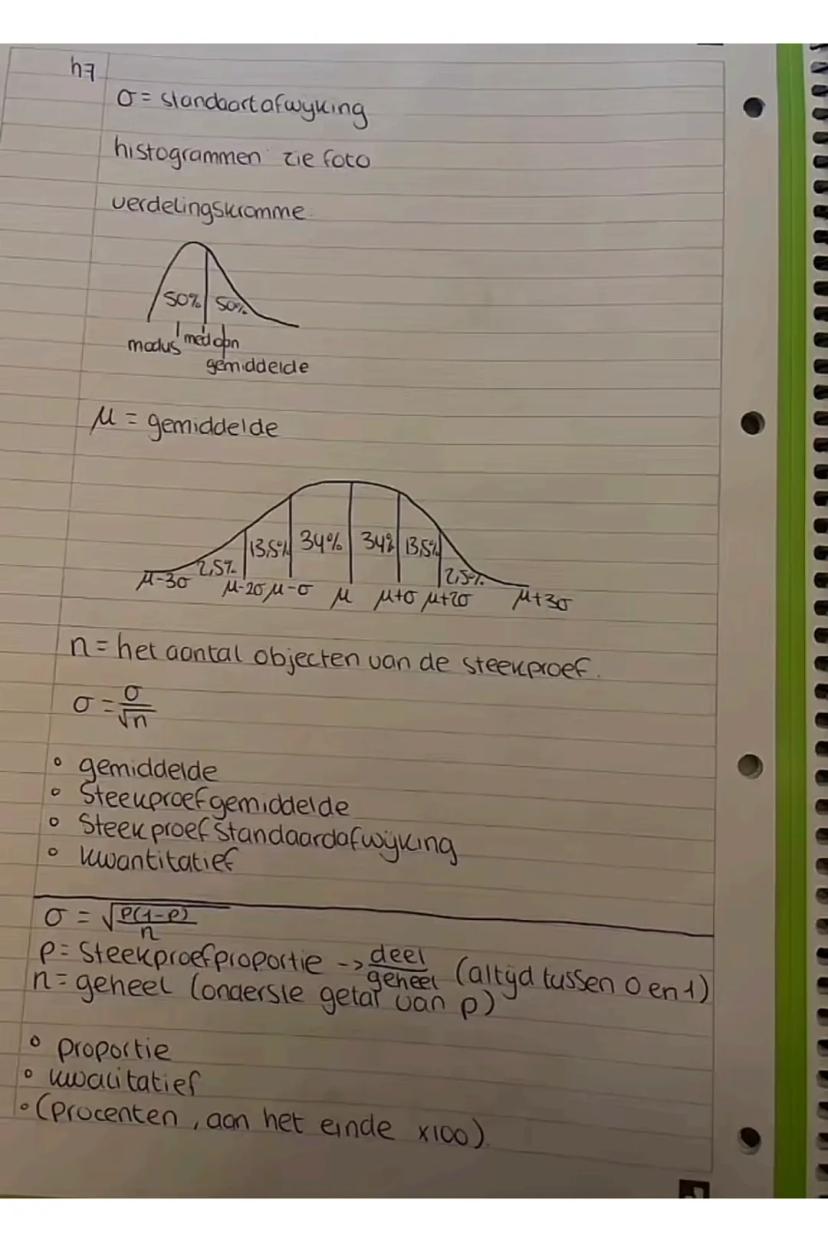 h7
σ = standaartafwyking
histogrammen zie foto
verdelingskromme
50% 50%
modus mediaan
gemiddelde
μ = gemiddelde
2,5% 13,5% 34% 34% 13,5% 2,5%
μ-3σ μ-2σ μ-σ μ μ+σ μ+2σ μ+3σ
n = het aantal objecten van de steekproef.
σ = σ/√n
° gemiddelde
° Steekproefgemiddelde
° Steekproefstandaardafwyking
° kwantitatief
σ = √(p(1-p)/n)
p = Steekproefproportie -> deel/geheel (altyd tussen 0 en 1)
n = geheel (onderste getal van p)
° proportie
° kwalitatief
° (procenten, aan het einde x100)